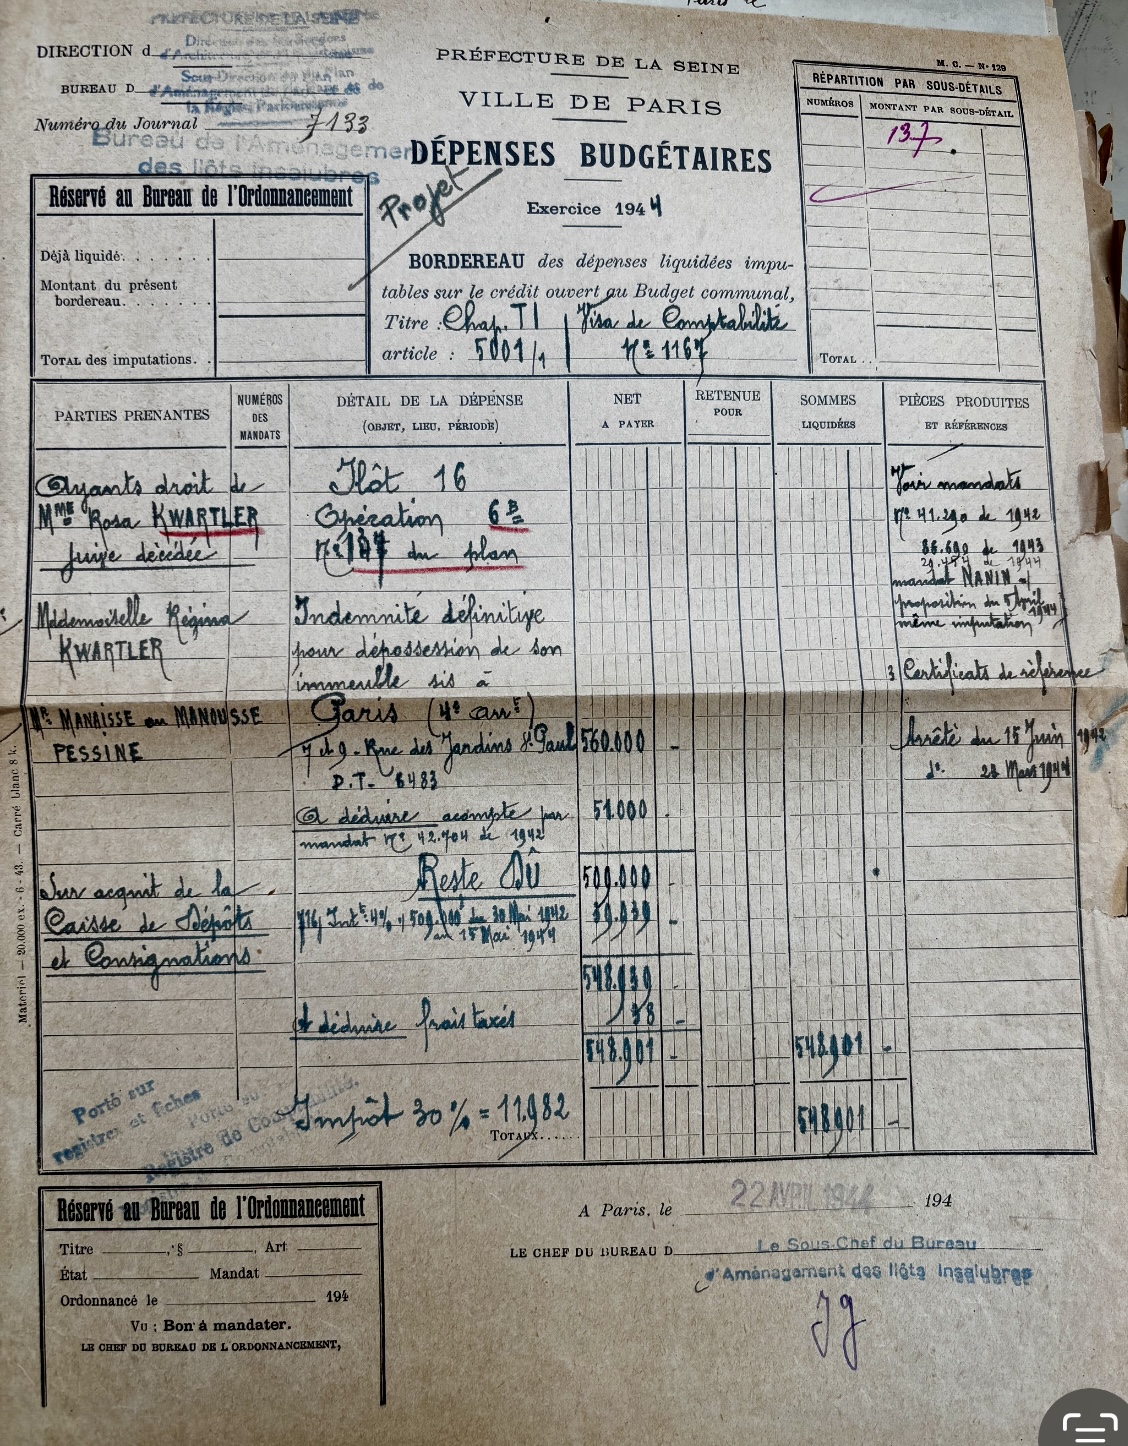 PRÉFECTURE DE LA SEINE
DIRECTION d
BUREAU D
Sous-Direction du Plan
d'Aménagement
la Région Parisienne
Numéro du Journal 7133
Bureau de l'Aménagement
des Ilôts insalubres
PRÉFECTURE DE LA SEINE
VILLE DE PARIS
DÉPENSES BUDGÉTAIRES
Projet
Exercice 1944
BORDEREAU des dépenses liquidées impu-
tables sur le crédit ouvert au Budget communal,
Titre : Chap. TI Visa de Comptabilité
article : 5001/1 Nº 1167
M. C. — Nº 129
RÉPARTITION PAR SOUS-DÉTAILS
NUMÉROS MONTANT PAR SOUS-DÉTAIL
137
TOTAL . .
Réservé au Bureau de l'Ordonnancement
Déjà liquidé. . . . . . .
Montant du présent
bordereau. . . . . . .
TOTAL des imputations. .
PARTIES PRENANTES
NUMÉROS
DES
MANDATS
DÉTAIL DE LA DÉPENSE
(OBJET, LIEU, PÉRIODE)
NET
A PAYER
RETENUE
POUR
SOMMES
LIQUIDÉES
PIÈCES PRODUITES
ET RÉFÉRENCES
Ayants droit de
Mme Rosa KWARTLER
juive décédée
Mademoiselle Régina
KWARTLER
Mr. MANAISSE ou MANOUSSE
PESSINE
Sur acquit de la
Caisse de Dépôts
et Consignations.
Ilôt 16
Opération 6B
du plan
Indemnité définitive
pour dépossession de son
immeuble sis à
Paris (4e arrt)
7 et 9 - Rue des Jardins St Paul 560.000 -
D.T. 6483
A déduire acompte par 51.000 .
mandat nº 42.704 de 1942
Reste Dû 509.000 -
Intts 4% s/ 509.000f du 30 Mai 1942 39.939 -
au 15 Mai 1944
548.939 -
A déduire frais taxés 38 -
548.901 - 548.901 -
Impôt 30 % = 11.982
TOTAUX...... 548901 -
Voir mandats
nº 41.290 de 1942
36.690 de 1943
de 1944
mandat NANIN -
proposition du 5 Avril 1944
même imputation
3 Certificats de référence
Arrêté du 15 Juin 1942
dº. 28 Mars 1944
Materiel — 20.000 ex. - 6 - 43. — Carré blanc 8 k.
Porté sur
registres et fiches
Registre de
Réservé au Bureau de l'Ordonnancement
Titre , § , Art
État Mandat
Ordonnancé le 194
Vu : Bon à mandater.
LE CHEF DU BUREAU DE L'ORDONNANCEMENT,
A Paris, le 22 AVRIL 1944 194
LE CHEF DU BUREAU D
Le Sous-Chef du Bureau
d'Aménagement des Ilôts Insalubres